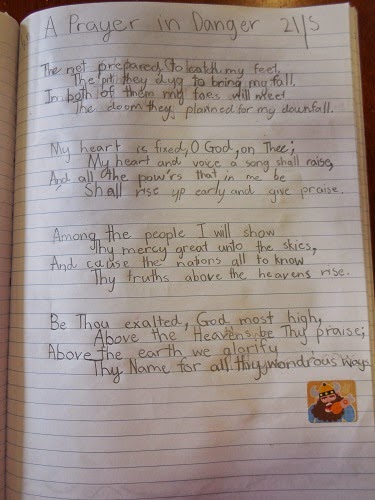 A Prayer in Danger 21/5
The net prepared to catch my feet,
The pit they dug to bring my fall.
In both of them my foes will meet
The doom they planned for my downfall.
My heart is fixed, O God, on Thee;
My heart and voice a song shall raise,
And all the pow'rs that in me be
Shall rise up early and give praise.
Among the people I will show
Thy mercy great unto the skies,
And cause the nations all to know
Thy truths above the heavens rise.
Be Thou exalted, God most high,
Above the Heavens be Thy praise;
Above the earth we glorify
Thy Name for all thy wondrous ways.